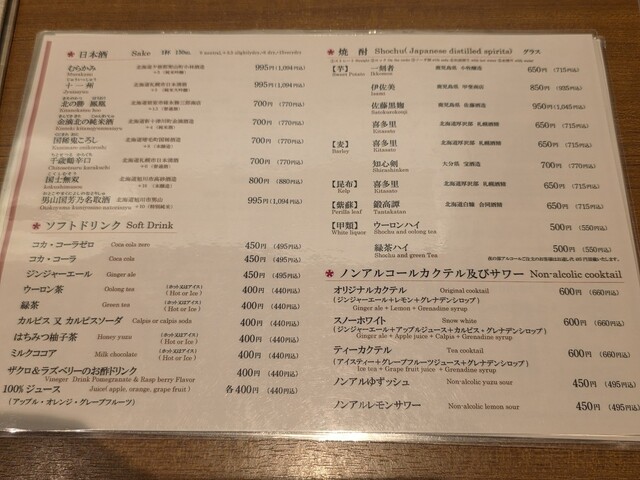 日本酒 Sake 1杯 150cc.
むらかみ 995円(1,094円税込)
Murakami
十一州 995円(1,094円税込)
北の勝 鳳凰 700円 (770円税込)
金滴北の純米酒 700円 (770円税込)
国稀鬼ころし 700円 (770円税込)
千歳鶴辛口 700円 (770円税込)
国士無双 800円 (880円税込)
男山国芳乃名取酒 995円 (1,094円税込)
ソフトドリンク Soft Drink
コカ・コーラゼロ Coca cola zero 450円 (495円税込)
コカ・コーラ Coca cola 450円 (495円税込)
ジンジャーエール Ginger ale 450円 (495円税込)
ウーロン茶 Oolong tea (ホット又はアイス) (Hot or Ice) 400円 (440円税込)
緑茶 Green tea (ホット又はアイス) (Hot or Ice) 400円 (440円税込)
カルピス 又 カルピスソーダ Calpis or calpis soda 400円 (440円税込)
はちみつ柚子茶 Honey yuzu (ホット又はアイス) (Hot or Ice) 400円 (440円税込)
ミルクココア Milk chocolate (ホット又はアイス) (Hot or Ice) 400円 (440円税込)
ザクロ&ラズベリーのお酢ドリンク 400円 (440円税込)
Vineger Drink Pomegranate & Rasp berry Flavor
100%ジュース Juice( apple, orange, grape fruit ) 各400円 (440円税込)
(アップル・オレンジ・グレープフルーツ)
焼酎 Shochu( Japanese distilled spirits) グラス
【芋】 一刻者 鹿児島県 小牧醸造 650円 (715円税込)
Sweet Potato Ikkomon
伊佐美 鹿児島県 甲斐商店 850円 (935円税込)
Isami
佐藤黒麹 鹿児島県 佐藤酒造 950円 (1,045円税込)
Satokurokouji
喜多里 北海道厚沢部 札幌酒精 650円 (715円税込)
Kitasato
【麦】 喜多里 北海道厚沢部 札幌酒精 650円 (715円税込)
Barley Kitasato
知心剣 大分県 宝酒造 700円 (770円税込)
Shirashinken
【昆布】 喜多里 北海道厚沢部 札幌酒精 650円 (715円税込)
Kelp Kitasato
【紫蘇】 鍛高譚 北海道白糠 合同酒精 650円 (715円税込)
Perilla leaf Tantakatan
【甲類】 ウーロンハイ 500円 (550円税込)
White liquor Shochu and oolong tea
緑茶ハイ 500円 (550円税込)
Shochu and green Tea
ノンアルコールカクテル及びサワー Non-alcolic cocktail
オリジナルカクテル Original cocktail 600円 (660円税込)
(ジンジャーエール+レモン+グレナデンシロップ)
Ginger ale + Lemon + Grenadine syrup
スノーホワイト Snow white 600円 (660円税込)
(ジンジャーエール+アップルジュース+カルピス+グレナデンシロップ)
Ginger ale + Apple juice + Calpis + Grenadine syrup
ティーカクテル Tea cocktail 600円 (660円税込)
(アイスティー+グレープフルーツジュース+グレナデンシロップ)
Ice tea + Grape fruit juice + Grenadine syrup
ノンアルゆずッシュ Non-alcolic yuzu sour 450円 (495円税込)
ノンアルレモンサワー Non-alcolic lemon sour 450円 (495円税込)